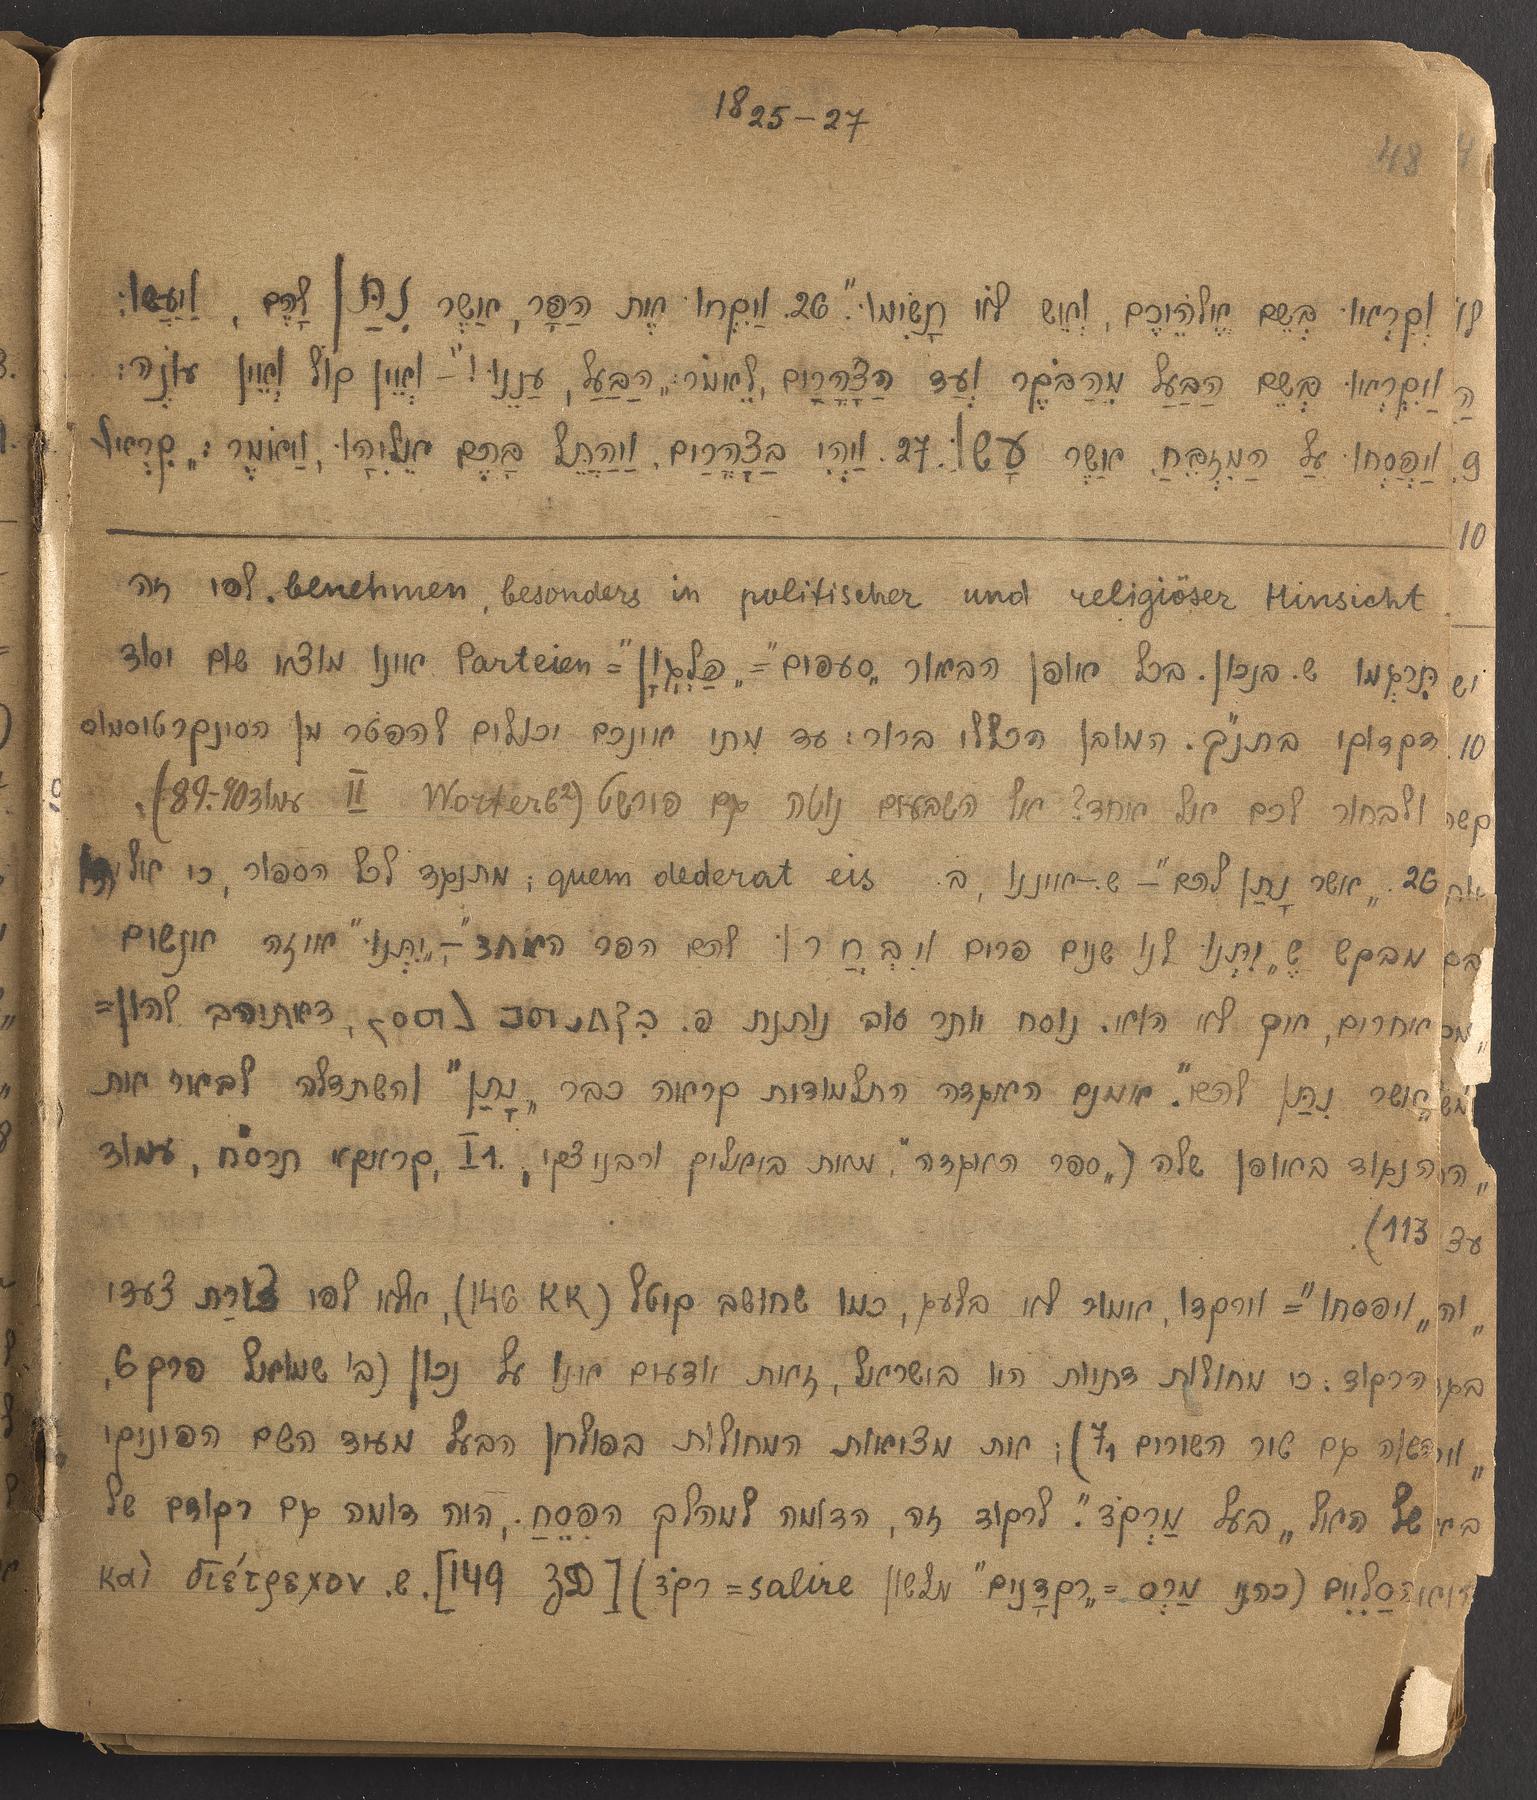 18 25–27
48
וְקִרְאוּ בְּשֵׁם אֱלֹהֵיכֶם, וְאֵשׁ לֹא תָשִׂימוּ." 26. וַיִּקְחוּ אֶת הַפָּר, אֲשֶׁר נִתַּן לָהֶם, וַיַּעֲשׂוּ.
וַיִּקְרְאוּ בְּשֵׁם הַבַּעַל מֵהַבֹּקֶר וְעַד הַצָּהֳרַיִם, לֵאמֹר: „הַבַּעַל, עֲנֵנוּ!" – וְאֵין קוֹל וְאֵין עוֹנֶה:
וַיְפַסְּחוּ עַל הַמִּזְבֵּחַ אֲשֶׁר עָשׂוּ. 27. וַיְהִי בַצָּהֳרַיִם, וַיְהַתֵּל בָּהֶם אֵלִיָּהוּ, וַיֹּאמֶר: „קִרְאוּ
benehmen, besonders in politischer und religiöser Hinsicht. לפי זה
תַּרְגְּמוּ ש. בנכון. בכל אופן הבאור „סעפים"= „פַּלְגָוָן"= Parteien אינו מוצא שום יסוד
דקדוקי בתנ"ך. המובן הכללי ברור: עד מתי אינכם יכולים להפטר מן הסינקרטיסמוס
ולבחור לכם אל אחד? אל השבעים נוטה גם פורשט (Wörterb²) II עמוד 89-90).
26. „אשר נָתַן להם" – ש. – איננו, ב. quem dederat eis; מתנגד לכל הספור, כי אליהו
מבקש שֶׁ„יִּתְּנוּ לנו שנים פרים וְיִבְחֲרוּ להם הפר האחד" –, „יִתְּנוּ" איזה אנשים
אחרים, אך לא הוא. נוסח יותר טוב נותנת פ. דאתיהב להון=
„אשר נִתַּן להם". אמנם האגדה התלמודית קראה כבר „נָתַן" והשתדלה לבאר את
הנקוד באופן שלה („ספר האגדה", מאת ביאליק ורבניצקי, I1, קראקא תרס"ח, עמוד
113).
„ויפסחו"= וירקדו, אמור לא בלעג, כמו שחושב קיטל (KK 146), אלא לפי צורַת צעדי
הרקוד: כי מחולות דתיות היו בישראל, זאת יודעים אנו על נכון (ב' שמואל פרק 6,
והשוה גם טור השורים 71); את מציאות המחולות בפולחן הבעל מעיד השם הפיניקי
של האל „בעל מַרְקֹד". לרקוד זה, הדומה למהלך הפִּסֵּחַ, היה דומה גם רקודם של
הסַּלְיִים (כהני מַרְס = „רַקְדָנִים" מלשון salire = רקד) [149 ]. ש. καὶ διέτρεχον